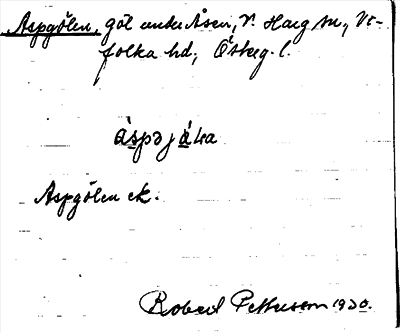 Aspgölen, göl under Åsen, V. Harg sn, Vi-
folka hd, Österg. l.
Aspgölen ek.
Robert Pettersson 1930.